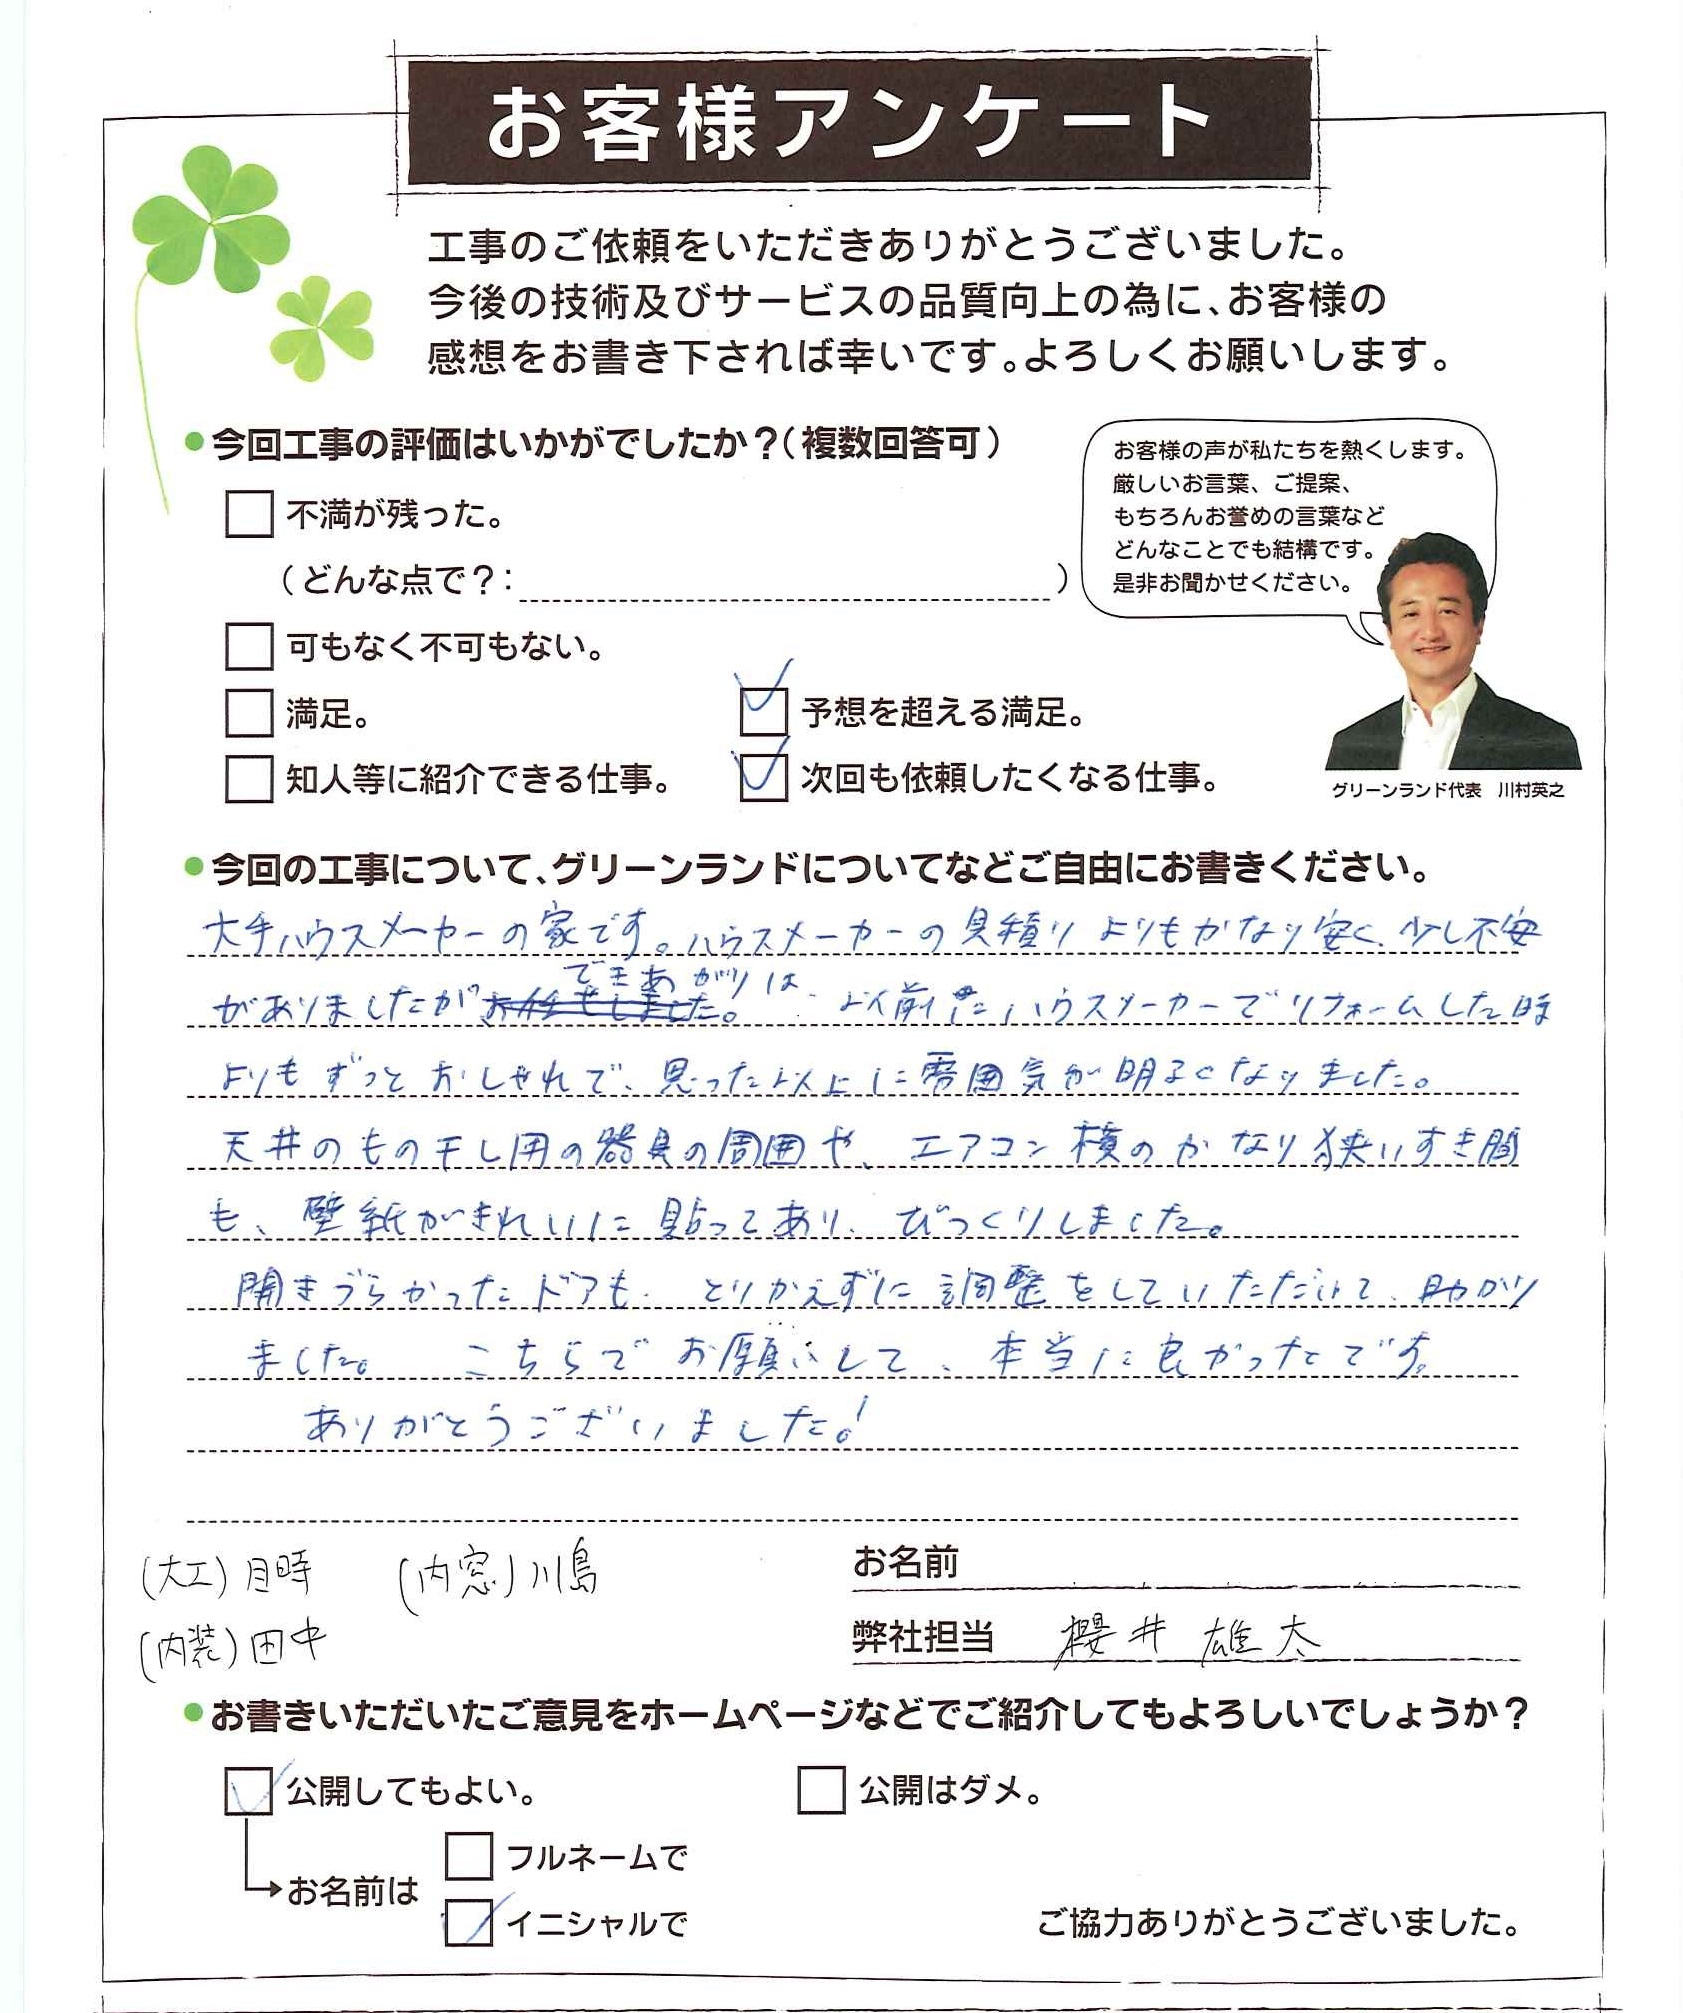 お客様アンケート
工事のご依頼をいただきありがとうございました。
今後の技術及びサービスの品質向上の為に、お客様の
感想をお書き下されば幸いです。よろしくお願いします。
●今回工事の評価はいかがでしたか?(複数回答可)
不満が残った。
(どんな点で?: )
可もなく不可もない。
満足。
予想を超える満足。
知人等に紹介できる仕事。
次回も依頼したくなる仕事。
お客様の声が私たちを熱くします。
厳しいお言葉、ご提案、
もちろんお誉めの言葉など
どんなことでも結構です。
是非お聞かせください。
グリーンランド代表 川村英之
●今回の工事について、グリーンランドについてなどご自由にお書きください。
大手ハウスメーカーの家です。ハウスメーカーの見積りよりもかなり安く、少し不安
がありましたが できあがりは、以前にハウスメーカーでリフォームした時
よりもずっとおしゃれで、思った以上に雰囲気が明るくなりました。
天井のもの干し用の器具の周囲や、エアコン横のかなり狭いすき間
も、壁紙がきれいに貼ってあり、びっくりしました。
開きづらかったドアも、とりかえずに調整をしていただいて、助かり
ました。 こちらでお願いして、本当に良かったです。
ありがとうございました!
(大工)月時 (内窓)川島
(内装)田中
お名前
弊社担当 櫻井 雄太
●お書きいただいたご意見をホームページなどでご紹介してもよろしいでしょうか?
公開してもよい。
公開はダメ。
お名前は
フルネームで
イニシャルで
ご協力ありがとうございました。